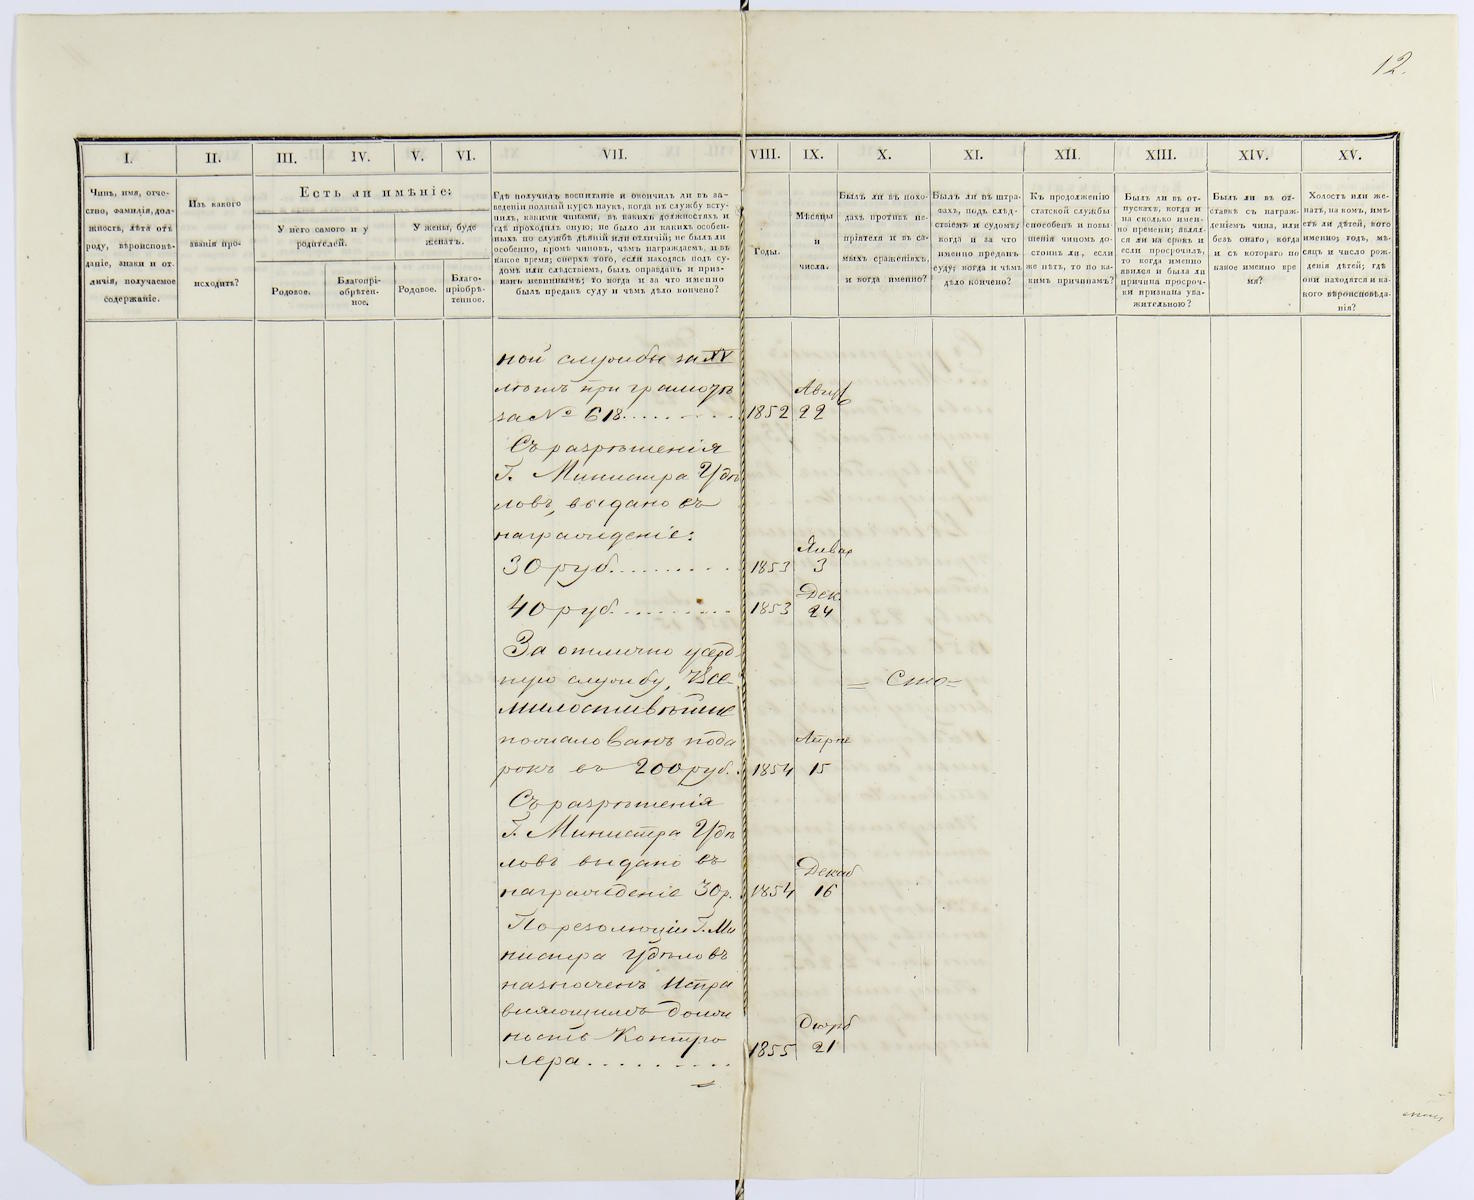 12.
I. II. III. IV. V. VI. VII. VIII. IX. X. XI. XII. XIII. XIV. XV.
Чинъ, имя, отче-
ство, фамилія, дол-
жность, лѣта отъ
роду, вѣроисповѣ-
даніе, знаки и от-
личія, получаемое
содержаніе.
Изъ какого
званія про-
исходитъ?
Есть ли имѣніе:
У него самого и у
родителей.
У жены, буде
женатъ.
Родовое.
Благопрі-
обрѣтен-
ное.
Родовое.
Благо-
пріобрѣ-
тенное.
Гдѣ получилъ воспитаніе и окончилъ ли въ за-
веденіи полный курсъ наукъ, когда въ службу всту-
пилъ, какими чинами, въ какихъ должностяхъ и
гдѣ проходилъ оную; не было ли какихъ особен-
ныхъ по службѣ дѣяній или отличій; не былъ ли
особенно, кромѣ чиновъ, чѣмъ награждаемъ, и въ
какое время; сверхъ того, если находясь подъ су-
домъ или слѣдствіемъ, былъ оправданъ и приз-
нанъ невиннымъ; то когда и за что именно
былъ преданъ суду и чѣмъ дѣло кончено?
Годы.
Мѣсяцы
и
числа.
Былъ ли въ похо-
дахъ противъ не-
пріятеля и въ са-
мыхъ сраженіяхъ,
и когда именно?
Былъ ли въ штра-
фахъ, подъ слѣд-
ствіемъ и судомъ;
когда и за что
именно преданъ
суду; когда и чѣмъ
дѣло кончено?
Къ продолженію
статской службы
способенъ и повы-
шенія чиномъ до-
стоинъ ли, если
же нѣтъ, то по ка-
кимъ причинамъ?
Былъ ли въ от-
пускахъ, когда и
на сколько имен-
но времени; являл-
ся ли на срокъ и
если просрочилъ,
то когда именно
явился и была ли
причина просроч-
ки признана ува-
жительною?
Былъ ли въ от-
ставкѣ съ награж-
деніемъ чина, или
безъ онаго, когда
и съ котораго по
какое именно вре
мя?
Холостъ или же-
натъ, на комъ, имѣ-
етъ ли дѣтей, кого
именно; годъ, мѣ-
сяцъ и число рож-
денія дѣтей; гдѣ
они находятся и ка-
кого вѣроисповѣда-
нія?
ной службы за XV
лѣтъ при грамотѣ Авгус
за № 618. 1852 22
Съ разрѣшенія
Г. Министра Удѣ
ловъ, выдано въ
награжденіе: Январ
30 руб. 1853 3
Дек.
40 руб. 1853 24
За отлично усерд-
ную службу, Все-
= Сто =
милостивѣйше
пожалованъ пода Апрѣ
рокъ въ 200 руб. 1854 15
Съ разрѣшенія
Г. Министра Удѣ
ловъ выдано въ Декаб
награжденіе 30 р. 1854 16
По резолюціи Г. Ми
нистра Удѣловъ
назначенъ Испра
вляющимъ долж
ность Контро
1855 21
лера.